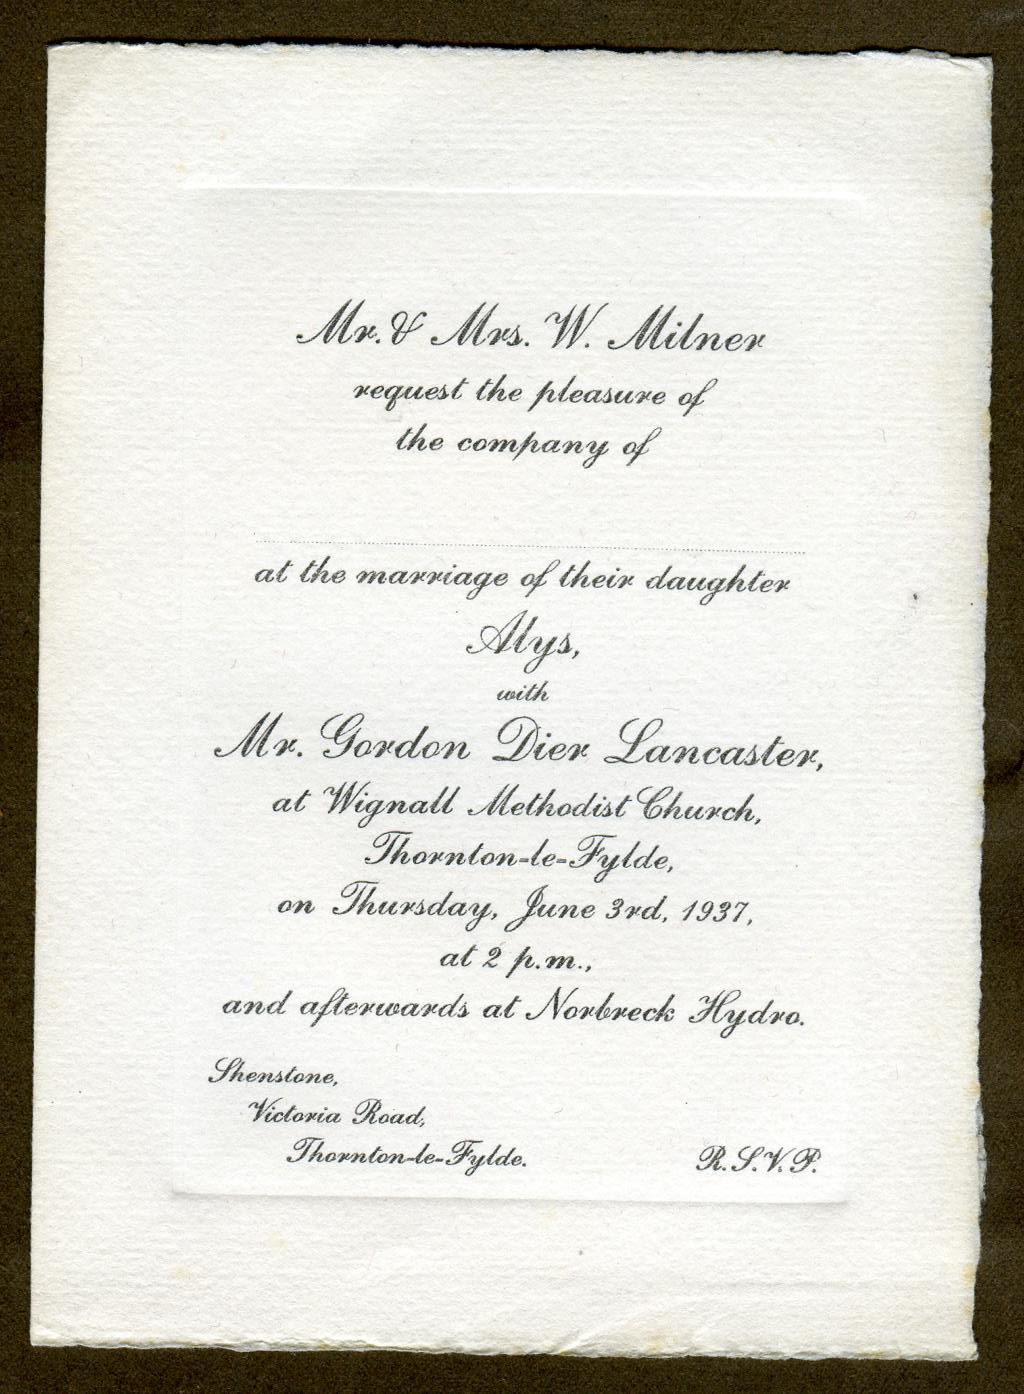 Mr. & Mrs. W. Milner
request the pleasure of
the company of
at the marriage of their daughter
Alys,
with
Mr. Gordon Dier Lancaster,
at Wignall Methodist Church,
Thornton-le-Fylde,
on Thursday, June 3rd, 1937,
at 2 p.m.,
and afterwards at Norbreck Hydro.
Shenstone,
Victoria Road,
Thornton-le-Fylde.
R.S.V.P.